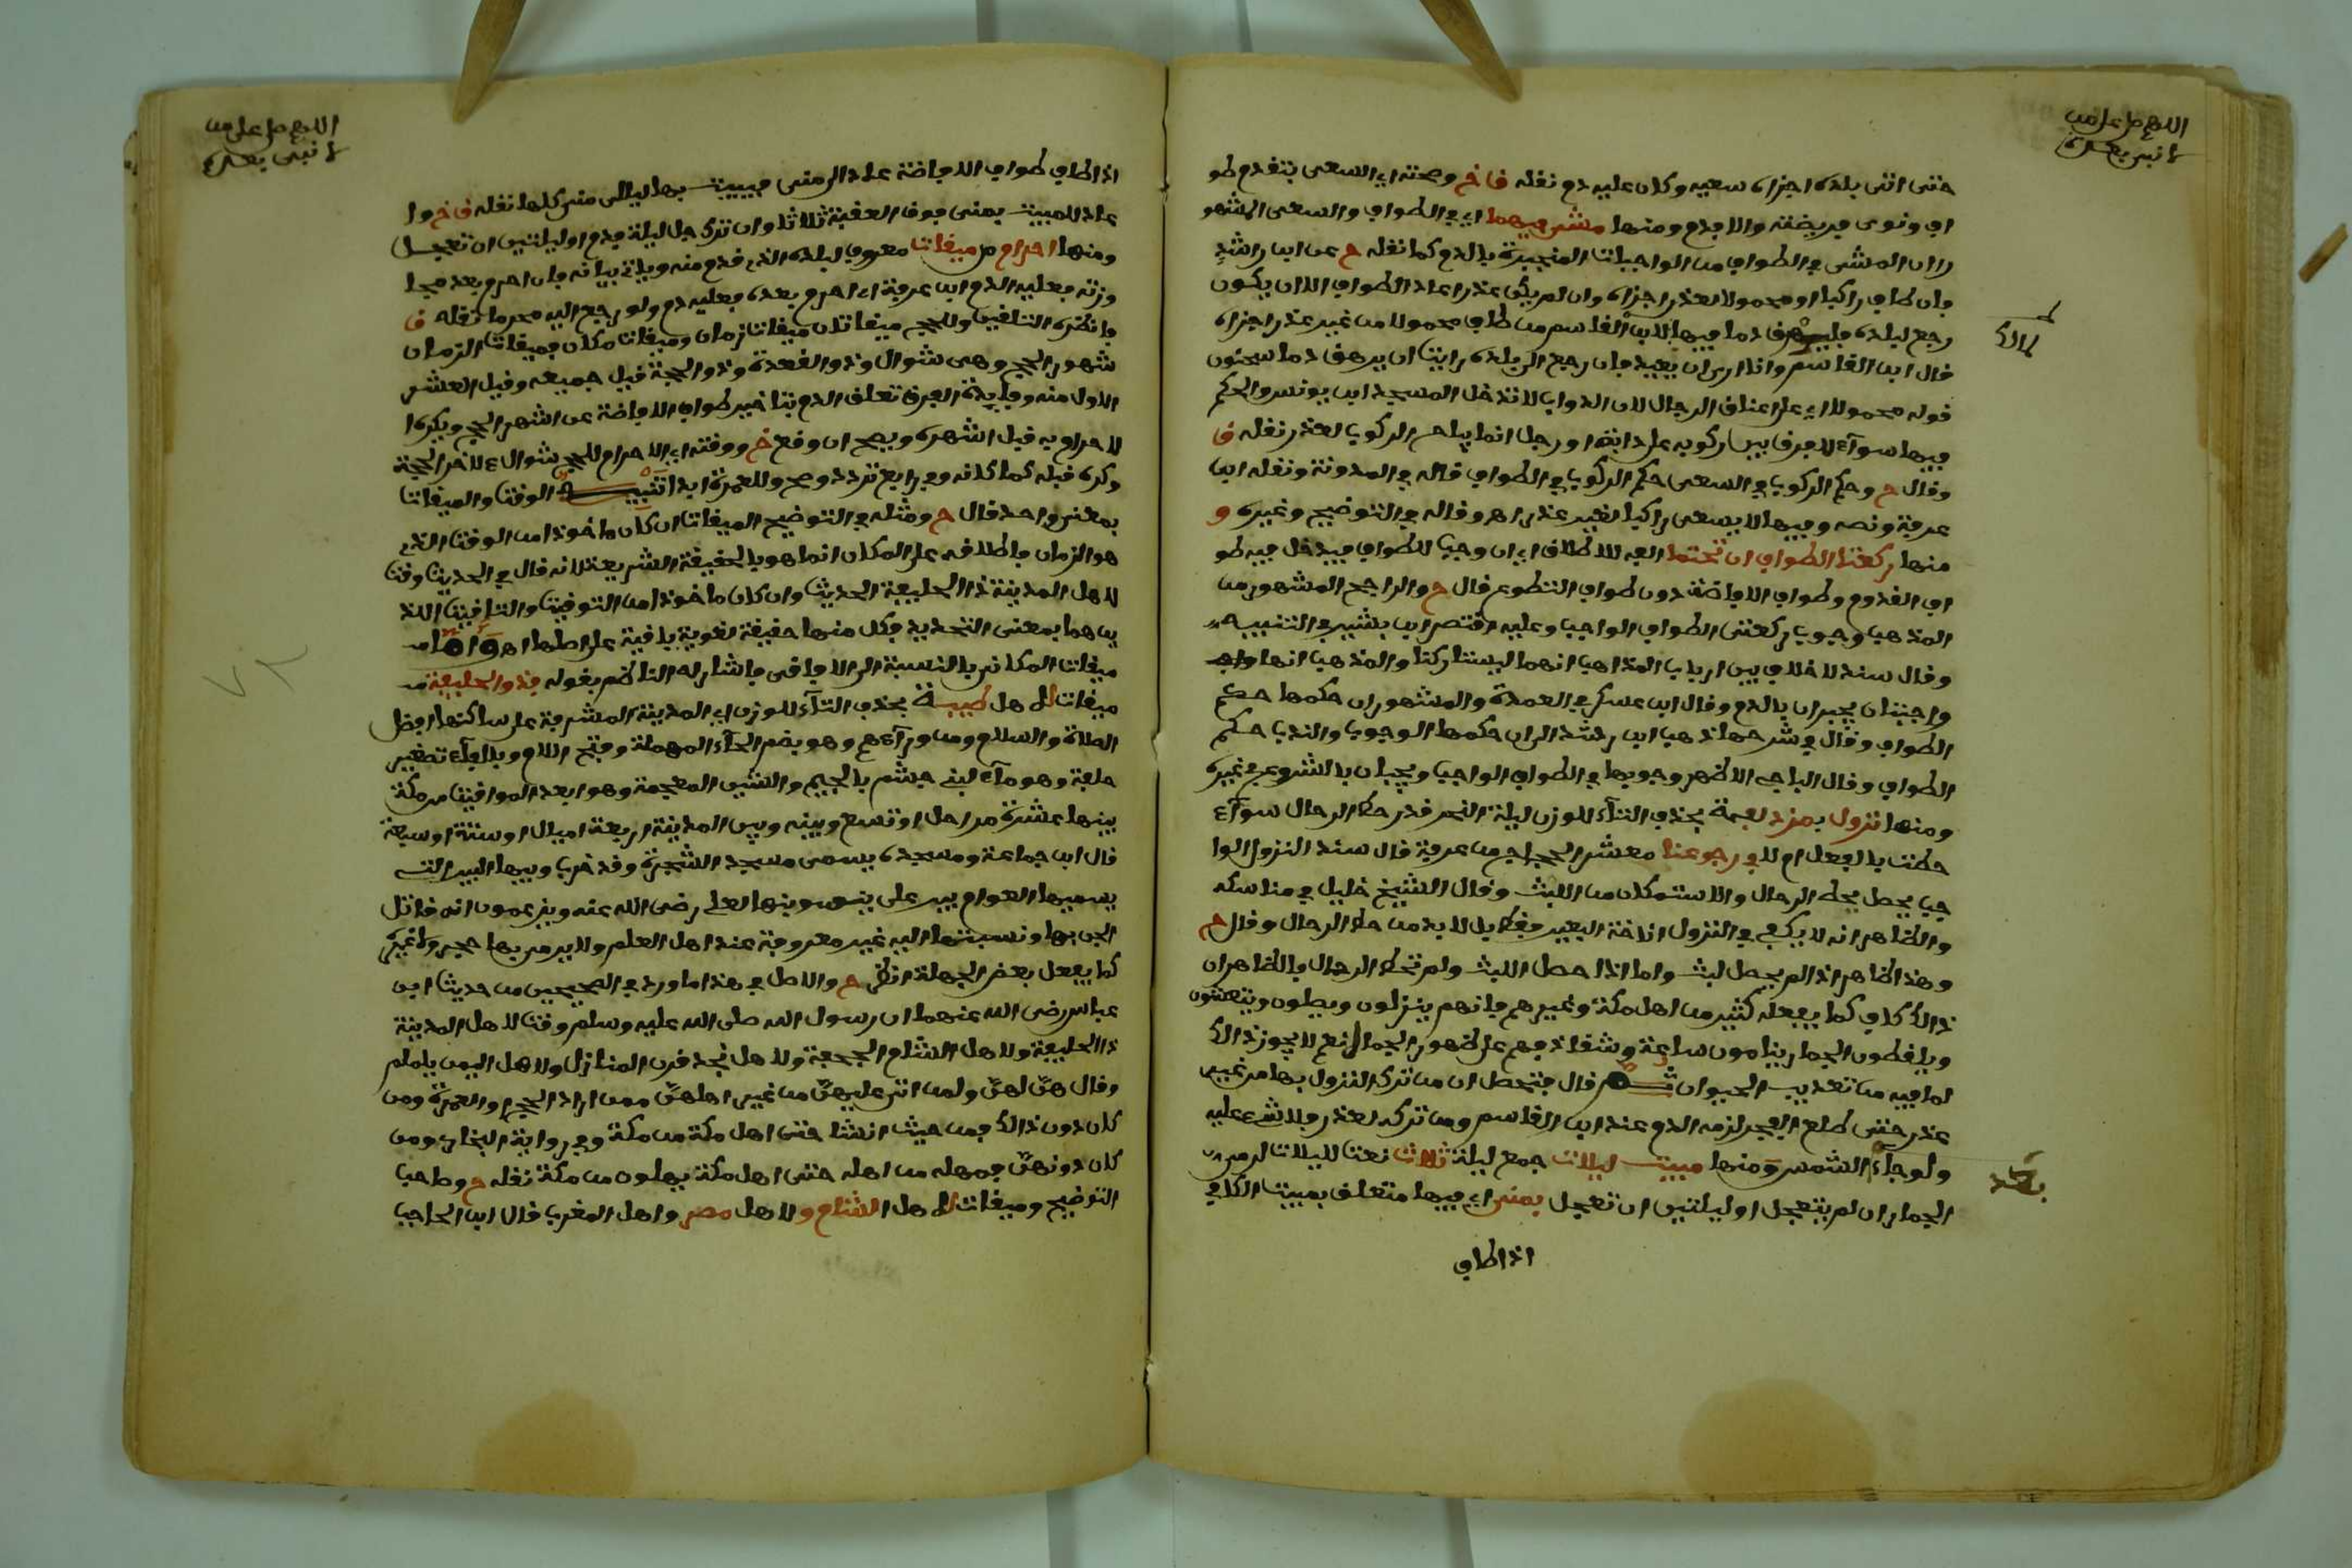 اللهم صل على من
لا نبي بعده
حتى اتى بلده اجزاه سعيه وكان عليه دم نقله ق خ وصحته اي السعي بتقدم طو
اف ونوى فريضته والا فدم ومنها مشي فيهما اي في الطواف والسعي المشهو
ر ان المشي في الطواف من الواجبات المنجبرة بالدم كما نقله ح عن ابن راشد
فان طاف راكبا او محمولا لعذر اجزاه وان لم يكن عذر اعاد الطواف الا ان يكون
رجع لبلده فليهرق دما فيها لابن القاسم من طاف محمولا من غير عذر اجزاه
مالك
قال ابن القاسم وانا ارى ان يعيد فان رجع الى بلده رايت ان يهرق دما سحنون
قوله محمولا اي على اعناق الرجال لان الدواب لا تدخل المسجد ابن يونس والحكم
فيها سواء لا فرق بين ركوبه على دابة او رجل انما يباح الركوب لعذر نقله ق
وقال ح وحكم الركوب في السعي حكم الركوب في الطواف قاله في المدونة ونقله ابن
عرفة ونصه وفيها لا يسعى راكبا لغير عذر اهـ وقاله في التوضيح وغيره و
منها ركعتا الطواف ان تحتما الفه للاطلاق اي ان وجب الطواف فيدخل فيه طو
اف القدوم وطواف الافاضة دون طواف التطوع قال ح والراجح المشهور من
المذهب وجوب ركعتي الطواف الواجب وعليه اقتصر ابن بشير في التنبيه
وقال سند لا خلاف بين ارباب المذاهب انهما ليستا ركنا والمذهب انها
واجبتان يجبران بالدم وقال ابن عسكر في العمدة والمشهور ان حكمها حكم
الطواف وقال في شرحها ذهب ابن رشد الى ان حكمها الوجوب والندب حكم
الطواف وقال الباجي الاظهر وجوبها في الطواف الواجب ويجبان بالشروع في غيره
ومنها نزول بمزدلفة بحذف التاء للوزن ليلة النحر قدر حط الرحال سواء
حطت بالفعل ام لا في رجوعنا معشر الحجاج من عرفة قال سند النزول الوا
جب يحصل بحط الرحال والاستمكان من اللبث وقال الشيخ خليل في مناسكه
والظاهر انه لا يكفي في النزول اناخة البعير فقط بل لا بد من حط الرحال وقال ح
وهذا ظاهر اذا لم يحصل لبث واما اذا حصل اللبث ولم تحط الرحال فالظاهر ان
ذالك كاف كما يفعله كثير من اهل مكة وغيرهم فانهم ينزلون ويصلون ويتعشون
ويلقطون الجمار وينامون ساعة وشقادفهم على ظهور الجمال نعم لا يجوز ذالك
لما فيه من تعذيب الحيوان ثم قال فتحصل ان من ترك النزول بها من غير
عذر حتى طلع الفجر لزمه الدم عند ابن القاسم ومن تركه لعذر فلا شيء عليه
ولو جاء بعد الشمس ومنها مبيت ليلات جمع ليلة ثلاث نعت لليلات لرمي
الجمار ان لم يتعجل او ليلتين ان تعجل بمنى اي فيها متعلق بمبيت الكافي
اذا طاف
اللهم صل على من
لا نبي بعده
اذا طاف طواف الافاضة عاد الى منى فيبيت بها ليالي منى كلها نقله ق خ وا
عاد للمبيت بمنى فوق العقبة ثلاثا وان ترك جل ليلة فدم او ليلتين ان تعجل
ومنها احرام من ميقات معروف لبلده الذي قدم منه وياتي بيانه فان احرم بعد مجا
وزته فعليه الدم ابن عرفة اي احرم بعده فعليه دم ولو رجع اليه محرما نقله ق
وانظره التلقين وللحج ميقاتان ميقات زمان وميقات مكان فميقات الزمان
شهور الحج وهي شوال وذو القعدة وذو الحجة قيل جميعه وقيل العشر
الاول منه وفايدة الفرق تعلق الدم بتاخير طواف الافاضة عن اشهر الحج ويكره ا
لاحرام به قبل اشهره ويصح ان وقع خ ووقته اي الاحرام للحج شوال لاخر الحجة
وكره قبله كمكانه وفي رابغ تردد وصح وللعمرة ابدا تنبيه الوقت والميقات
بمعنى واحد قال ح ومثله في التوضيح الميقات ان كان ماخوذا من الوقت الذي
هو الزمان فاطلاقه على المكان انما هو بالحقيقة الشرعية لانه قال في الحديث وقت
لاهل المدينة ذا الحليفة الحديث وان كان ماخوذا من التوقيت والتاقيت اللذ
ين هما بمعنى التحديد فكل منها حقيقة لغوية باقية على اصلها اهـ واما
ميقات المكاني بالنسبة الى الافاقي فاشار له الناظم بقوله فذو الحليفة
ميقات لاهل طيبة بحذف التاء للوزن اي المدينة المشرفة على ساكنها افضل
الصلاة والسلام ومن وراءهم وهو بضم الحاء المهملة وفتح اللام وبالفاء تصغير
حلفة وهو ماء لبني جشم بالجيم والشين المعجمة وهو ابعد المواقيت من مكة
بينها عشرة مراحل او تسع وبينه وبين المدينة اربعة اميال او ستة او سبعة
قال ابن جماعة ومسجده يسمى مسجد الشجرة وقد خرب وبيها البير التي
يسميها العوام بير علي ينسبونها لعلي رضي الله عنه ويزعمون انه قاتل
الجن بها ونسبتها اليه غير معروفة عند اهل العلم ولا يرمى بها حجر ولا غيره
كما يفعل بعض الجهلة انظر ح والاصل في هذا ما ورد في الصحيحين من حديث ابن
عباس رضي الله عنهما ان رسول الله صلى الله عليه وسلم وقت لاهل المدينة
ذا الحليفة ولاهل الشام الجحفة ولاهل نجد قرن المنازل ولاهل اليمن يلملم
وقال هن لهن ولمن اتى عليهن من غير اهلهن ممن اراد الحج والعمرة ومن
كان دون ذالك فمن حيث انشا حتى اهل مكة من مكة وفي رواية البخاري ومن
كان دونهن فمهله من اهله حتى اهل مكة يهلون من مكة نقله ح وصاحب
التوضيح وميقات لاهل الشام ولاهل مصر واهل المغرب قال ابن الحاجب